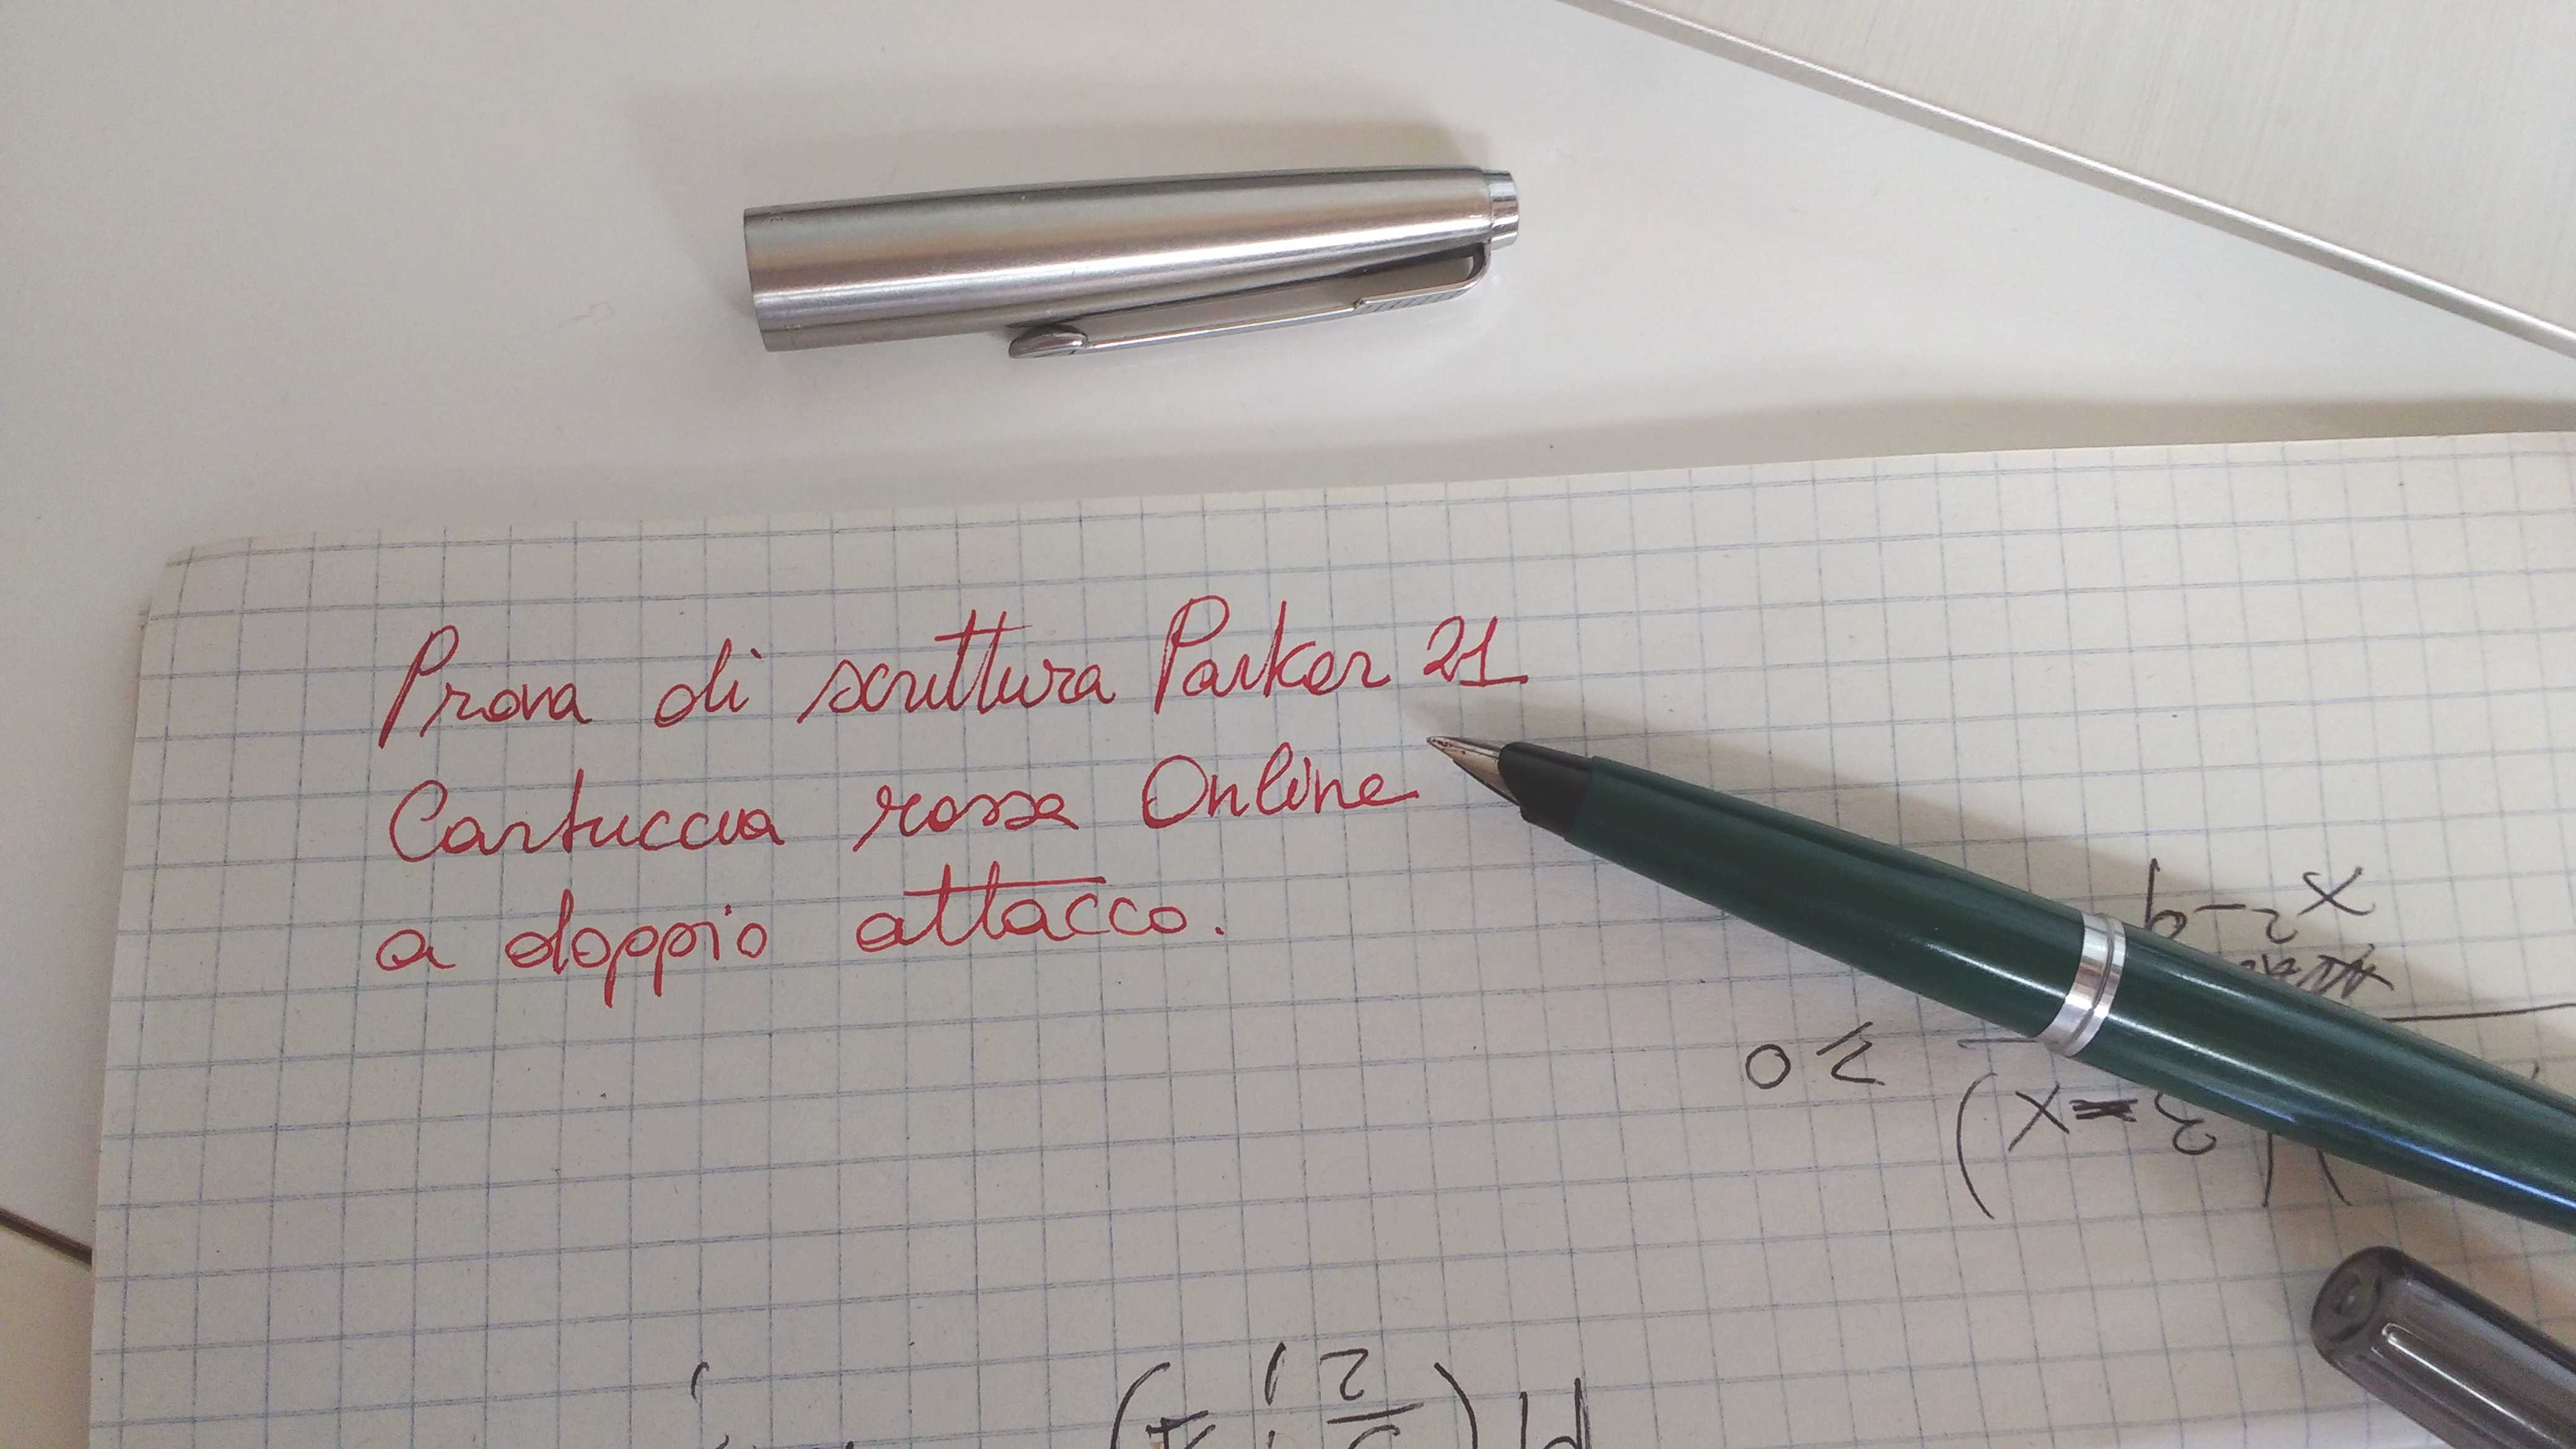 Prova di scrittura Parker 21
Cartuccia rossa Online
a doppio attacco.
x²-9
(3-x)
≥0